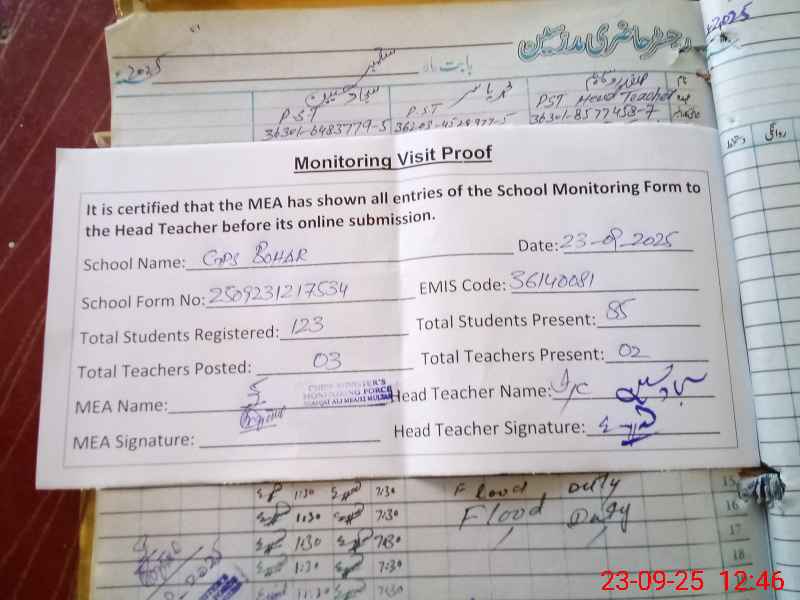 2025
رجسٹر حاضری مدرسین
2025 بابت ماہ ستمبر
سجاد حسین
P.S.T P.S.T PST Head Teacher
36301-6483779-5 36301-8577458-7
Monitoring Visit Proof
It is certified that the MEA has shown all entries of the School Monitoring Form to
the Head Teacher before its online submission.
School Name: GPS BOHAR Date: 23-09-2025
School Form No: 2509231217534 EMIS Code: 36140081
Total Students Registered: 123 Total Students Present: 85
Total Teachers Posted: 03 Total Teachers Present: 02
MEA Name: CHIEF MINISTER'S Head Teacher Name: I/C
MONITORING FORCE
MEA Signature: Head Teacher Signature:
1:30 7:30 Flood Duty 15
1:30 7:30 Flood Duty 16
1:30 7:30 17
1:30 7:30 18
11:30 7:30
23-09-25 12:46